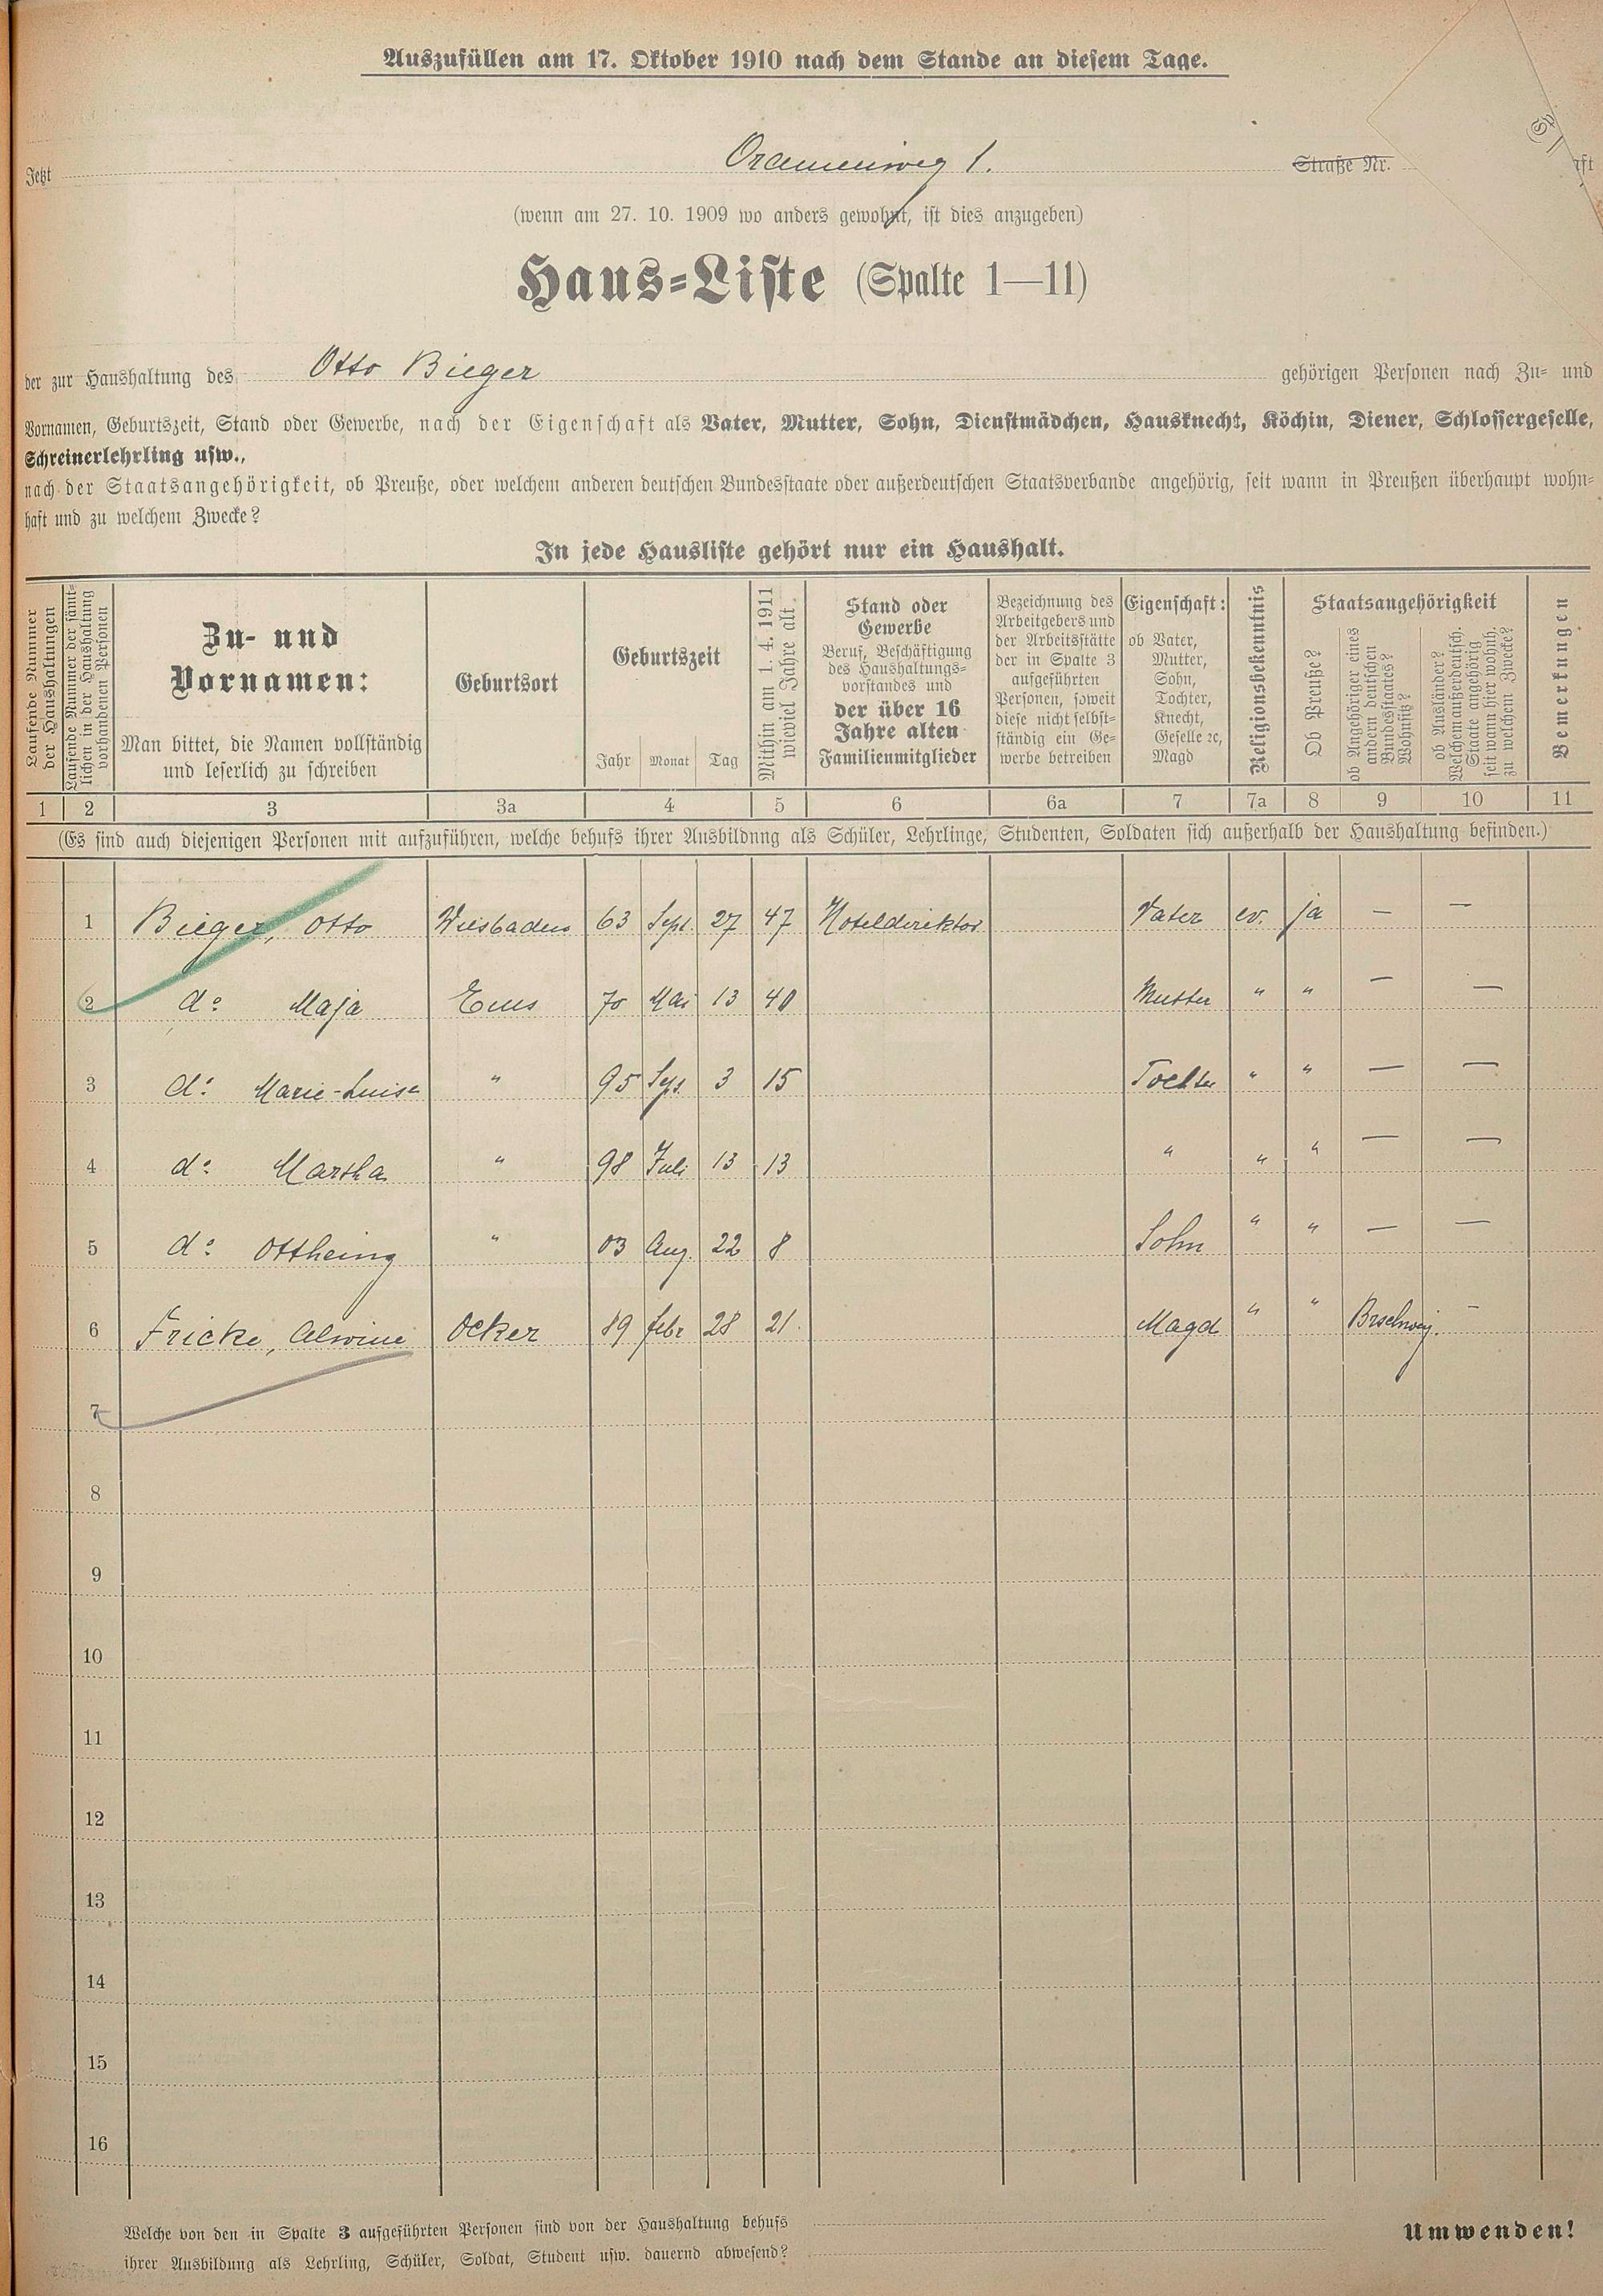 Auszufüllen am 17. Oktober 1910 nach dem Stande an diesem Tage.
Jetzt Oranienweg 1. Straße Nr.
(wenn am 27. 10. 1909 wo anders gewohnt, ist dies anzugeben)
Haus-Liste (Spalte 1—11)
der zur Haushaltung des Otto Bieger gehörigen Personen nach Zu- und
Vornamen, Geburtszeit, Stand oder Gewerbe, nach der Eigenschaft als Vater, Mutter, Sohn, Dienstmädchen, Hausknecht, Köchin, Diener, Schlossergeselle,
Schreinerlehrling usw.,
nach der Staatsangehörigkeit, ob Preuße, oder welchem anderen deutschen Bundesstaate oder außerdeutschen Staatsverbande angehörig, seit wann in Preußen überhaupt wohn-
haft und zu welchem Zwecke?
In jede Hausliste gehört nur ein Haushalt.
Laufende Nummer
der Haushaltungen
Laufende Nummer der sämt-
lichen in der Haushaltung
vorhandenen Personen
Zu- und
Vornamen:
Man bittet, die Namen vollständig
und leserlich zu schreiben
Geburtsort
Geburtszeit
Jahr Monat Tag
Mithin am 1. 4. 1911
wieviel Jahre alt
Stand oder
Gewerbe
Beruf, Beschäftigung
des Haushaltungs-
vorstandes und
der über 16
Jahre alten
Familienmitglieder
Bezeichnung des
Arbeitgebers und
der Arbeitsstätte
der in Spalte 3
aufgeführten
Personen, soweit
diese nicht selbst-
ständig ein Ge-
werbe betreiben
Eigenschaft:
ob Vater,
Mutter,
Sohn,
Tochter,
Knecht,
Geselle ꝛc,
Magd
Religionsbekenntnis
Staatsangehörigkeit
Ob Preuße?
ob Angehöriger eines
andern deutschen
Bundesstaates?
Wohnsitz?
ob Ausländer?
Welchem außerdeutsch.
Staate angehörig
seit wann hier wohnh.
zu welchem Zwecke?
Bemerkungen
1 2 3 3a 4 5 6 6a 7 7a 8 9 10 11
(Es sind auch diejenigen Personen mit aufzuführen, welche behufs ihrer Ausbildung als Schüler, Lehrlinge, Studenten, Soldaten sich außerhalb der Haushaltung befinden.)
1 Bieger, Otto Wiesbaden 63 Sept. 27 47 Hoteldirektor Vater ev. ja — —
2 do Maja Ems 70 Mai 13 40 Mutter " " — —
3 do Marie-Luise " 95 Sep. 3 15 Tochter " " — —
4 do Martha " 98 Juli 13 13 " " " — —
5 do Ottheinz " 03 Aug. 22 8 Sohn " " — —
6 Fricke, Alwine Ocker 89 Febr 28 21. Magd " " Brschweig. —
7
8
9
10
11
12
13
14
15
16
Welche von den in Spalte 3 aufgeführten Personen sind von der Haushaltung behufs
ihrer Ausbildung als Lehrling, Schüler, Soldat, Student usw. dauernd abwesend?
Umwenden!